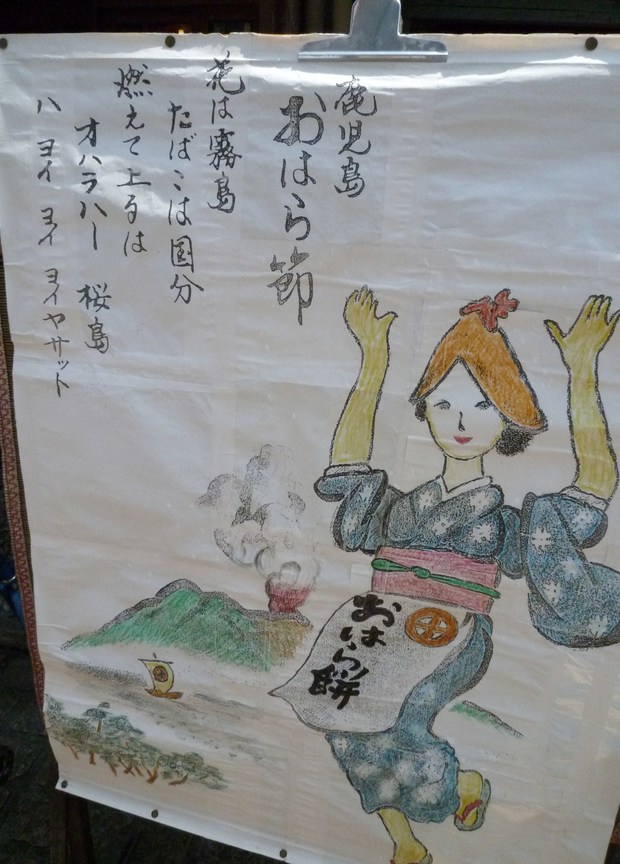 鹿児島
おはら節
花は霧島
たばこは国分
燃えて上るは
オハラハー 桜島
ハ ヨイ ヨイ ヨイヤサット
おはら餅